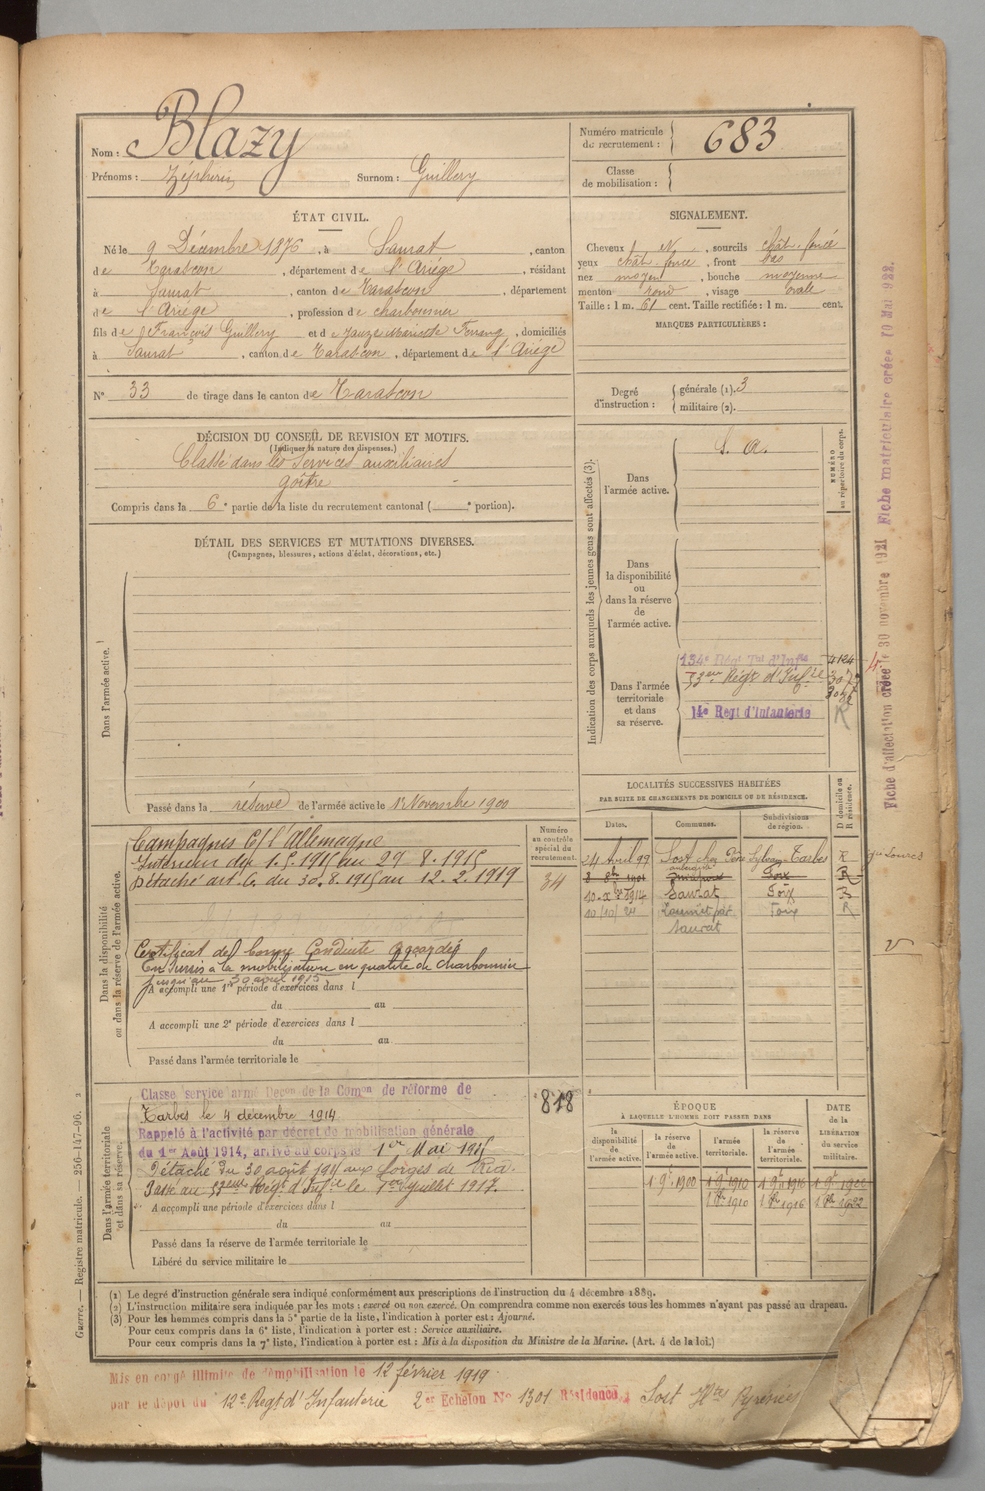 Nom : Blazy
Prénoms : Zéphirin Surnom : Guillery
Numéro matricule de recrutement : 683
Classe de mobilisation :
ÉTAT CIVIL.
Né le 9 Décembre 1876, à Saurat, canton
de Tarascon, département de l'Ariège, résidant
à Saurat, canton de Tarascon, département
de l'Ariège, profession de charbonnier
fils de François Guillery et de Marie, domiciliés
à Saurat, canton de Tarascon, département de l'Ariège
N° 33 de tirage dans le canton de Tarascon
SIGNALEMENT.
Cheveux, sourcils chât. foncé
yeux chât. foncé, front bas
nez moyen, bouche moyenne
menton rond, visage ovale
Taille : 1 m. 61 cent. Taille rectifiée : 1 m. cent.
MARQUES PARTICULIÈRES :
Degré d'instruction : générale (1). 3
militaire (2).
DÉCISION DU CONSEIL DE REVISION ET MOTIFS.
(Indiquer la nature des dispenses.)
Classé dans les Services auxiliaires
goître
Compris dans la 6e partie de la liste du recrutement cantonal ( e portion).
DÉTAIL DES SERVICES ET MUTATIONS DIVERSES.
(Campagnes, blessures, actions d'éclat, décorations, etc.)
Dans l'armée active.
Passé dans la réserve de l'armée active le 1 Novembre 1900
Indication des corps auxquels les jeunes gens sont affectés (3).
NUMÉRO au répertoire du corps.
Dans l'armée active. S. A.
Dans la disponibilité ou dans la réserve de l'armée active.
Dans l'armée territoriale et dans sa réserve.
134e Régt Tal d'Infie
Régt d'Infie
14e Regt d'Infanterie
R
Fiche d'affectation créée le 30 novembre 1921 Fiche matriculaire créée 10 Mai 1922.
LOCALITÉS SUCCESSIVES HABITÉES
PAR SUITE DE CHANGEMENTS DE DOMICILE OU DE RÉSIDENCE.
Dates. Communes. Subdivisions de région. D domicile ou R résidence.
24 Avril 99 Sost chez Père Sylvain Tarbes R
Foix R
1914 Saurat Foix
10/10/20 par Saurat Foix R
Dans la disponibilité ou dans la réserve de l'armée active.
Numéro au contrôle spécial du recrutement.
34
Campagnes C/ l'Allemagne
Intérieur du 1.5.1915 au 29.8.1915
Détaché art. 6. du 30.8.1915 au 12.2.1919
Certificat de bonne Conduite accordé
En sursis à la mobilisation en qualité de charbonnier
jusqu'au 30 avril 1915
A accompli une 1re période d'exercices dans l
du au
A accompli une 2e période d'exercices dans l
du au
Passé dans l'armée territoriale le
Dans l'armée territoriale et dans sa réserve.
818
Classe service armé Décon de la Comon de réforme de
Tarbes le 4 décembre 1914
Rappelé à l'activité par décret de mobilisation générale
du 1er Août 1914, arrivé au corps le 1er Mai 1915
Détaché du 30 août 1915 aux forges de Ria.
Passé au Régt d'Infie le 1er juillet 1917.
A accompli une période d'exercices dans l
du au
Passé dans la réserve de l'armée territoriale le
Libéré du service militaire le
ÉPOQUE
À LAQUELLE L'HOMME DOIT PASSER DANS
la disponibilité de l'armée active. la réserve de l'armée active. l'armée territoriale. la réserve de l'armée territoriale.
DATE de la LIBÉRATION du service militaire.
1 9e 1900 1 9e 1910 1 9e 1916 1 9e 1922
1 8e 1910 1 8e 1916 1 8e 1922
Guerre. — Registre matricule. — 256-147-96. 2
(1) Le degré d'instruction générale sera indiqué conformément aux prescriptions de l'instruction du 4 décembre 1889.
(2) L'instruction militaire sera indiquée par les mots : exercé ou non exercé. On comprendra comme non exercés tous les hommes n'ayant pas passé au drapeau.
(3) Pour les hommes compris dans la 5e partie de la liste, l'indication à porter est : Ajourné.
Pour ceux compris dans la 6e liste, l'indication à porter est : Service auxiliaire.
Pour ceux compris dans la 7e liste, l'indication à porter est : Mis à la disposition du Ministre de la Marine. (Art. 4 de la loi.)
Mis en congé illimité de démobilisation le 12 février 1919
par le dépôt du 12e Regt d'Infanterie 2e Echelon N° 1301 Résidence : Sost Htes Pyrénées